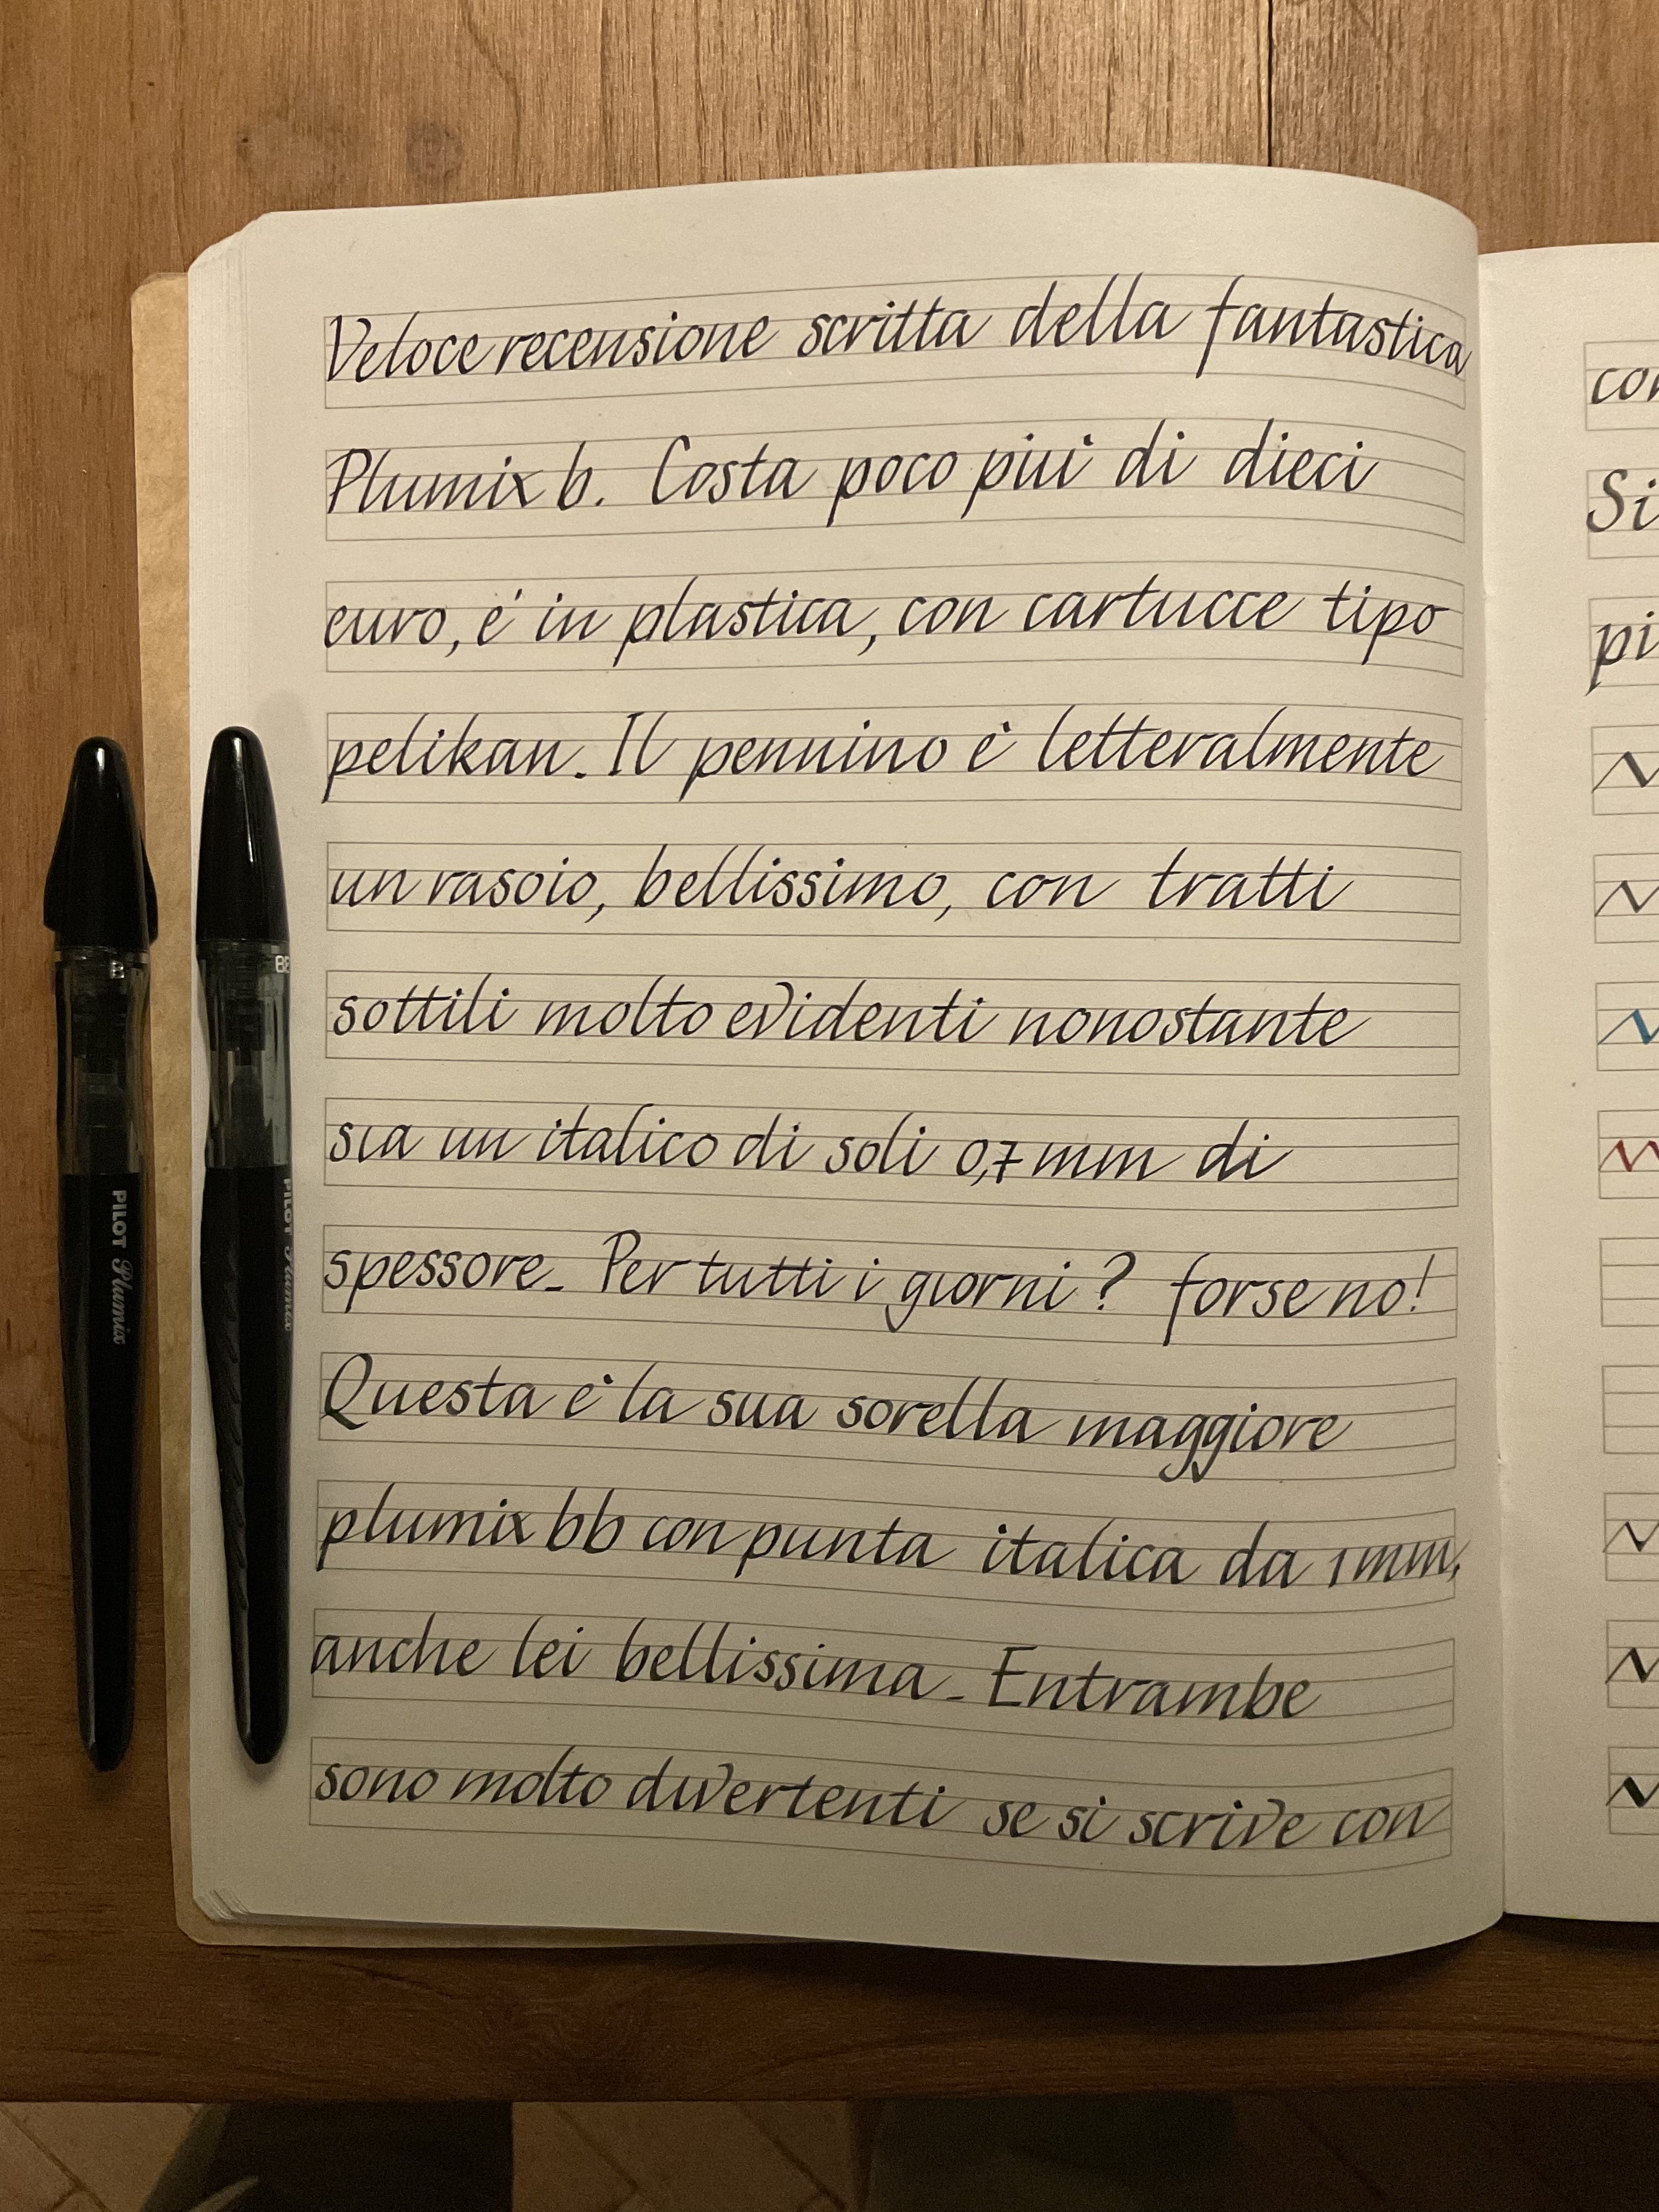 Veloce recensione scritta della fantastica
Plumix b. Costa poco più di dieci
euro, è in plastica, con cartucce tipo
pelikan. Il pennino è letteralmente
un rasoio, bellissimo, con tratti
sottili molto evidenti nonostante
sia un italico di soli 0,7 mm di
spessore_ Per tutti i giorni? forse no!
Questa è la sua sorella maggiore
plumix bb con punta italica da 1 mm,
anche lei bellissima_ Entrambe
sono molto divertenti se si scrive con
B
PILOT Plumix
BB
PILOT Plumix
Si
pi